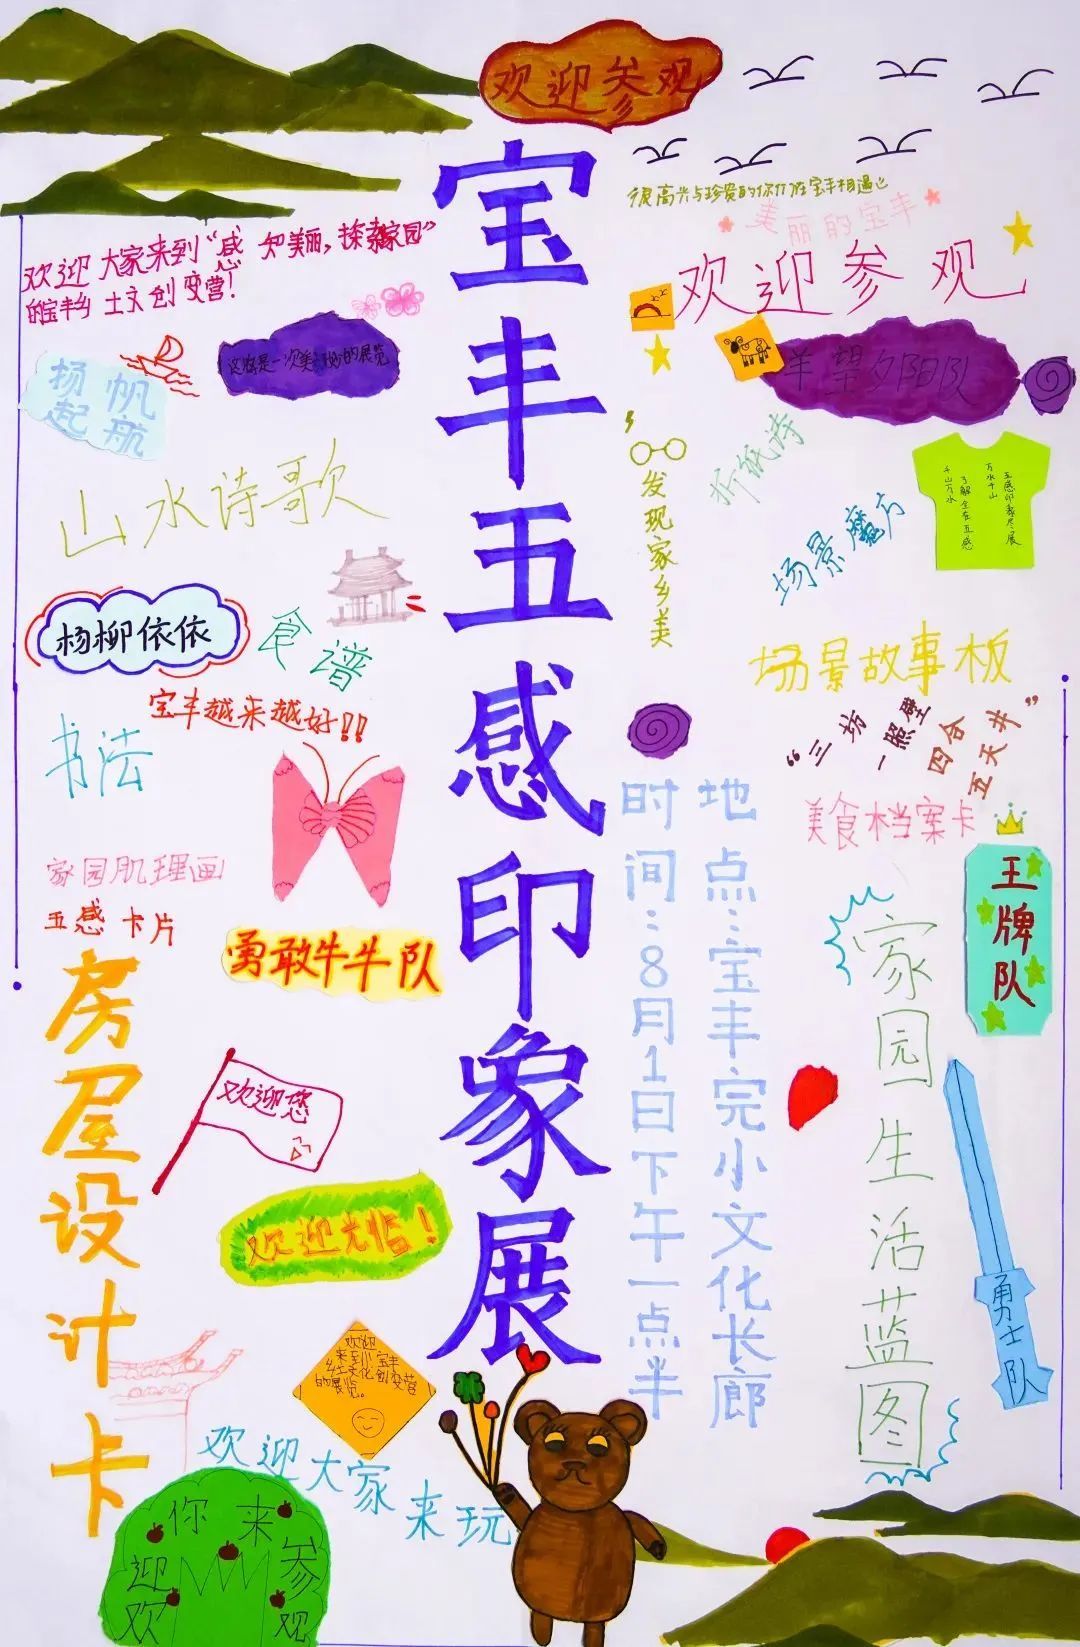 欢迎参观
宝丰五感印象展
很高兴与珍贵的你们在宝丰相遇
美丽的宝丰
欢迎参观
欢迎大家来到“感知美丽，探索家园”
的宝丰乡土文创变营！
这将是一次美妙的展览
扬帆
起航
羊望夕阳队
山水诗歌
发现家乡美
折纸诗
场景魔方
五感印象尽展
万水千山
了解全在五感
千山万水
杨柳依依
食谱
场景故事板
宝丰越来越好!!
“三坊
一照壁
四合
五天井”
书法
美食档案卡
王牌队
家园肌理画
五感卡片
勇敢牛牛队
房屋设计卡
地点：宝丰完小文化长廊
时间：8月1日下午一点半
家园生活蓝图
欢迎您
欢迎光临！
勇士队
欢迎
来到宝丰
乡土文化创变营
的展览。
欢迎大家来玩
欢迎你来参观